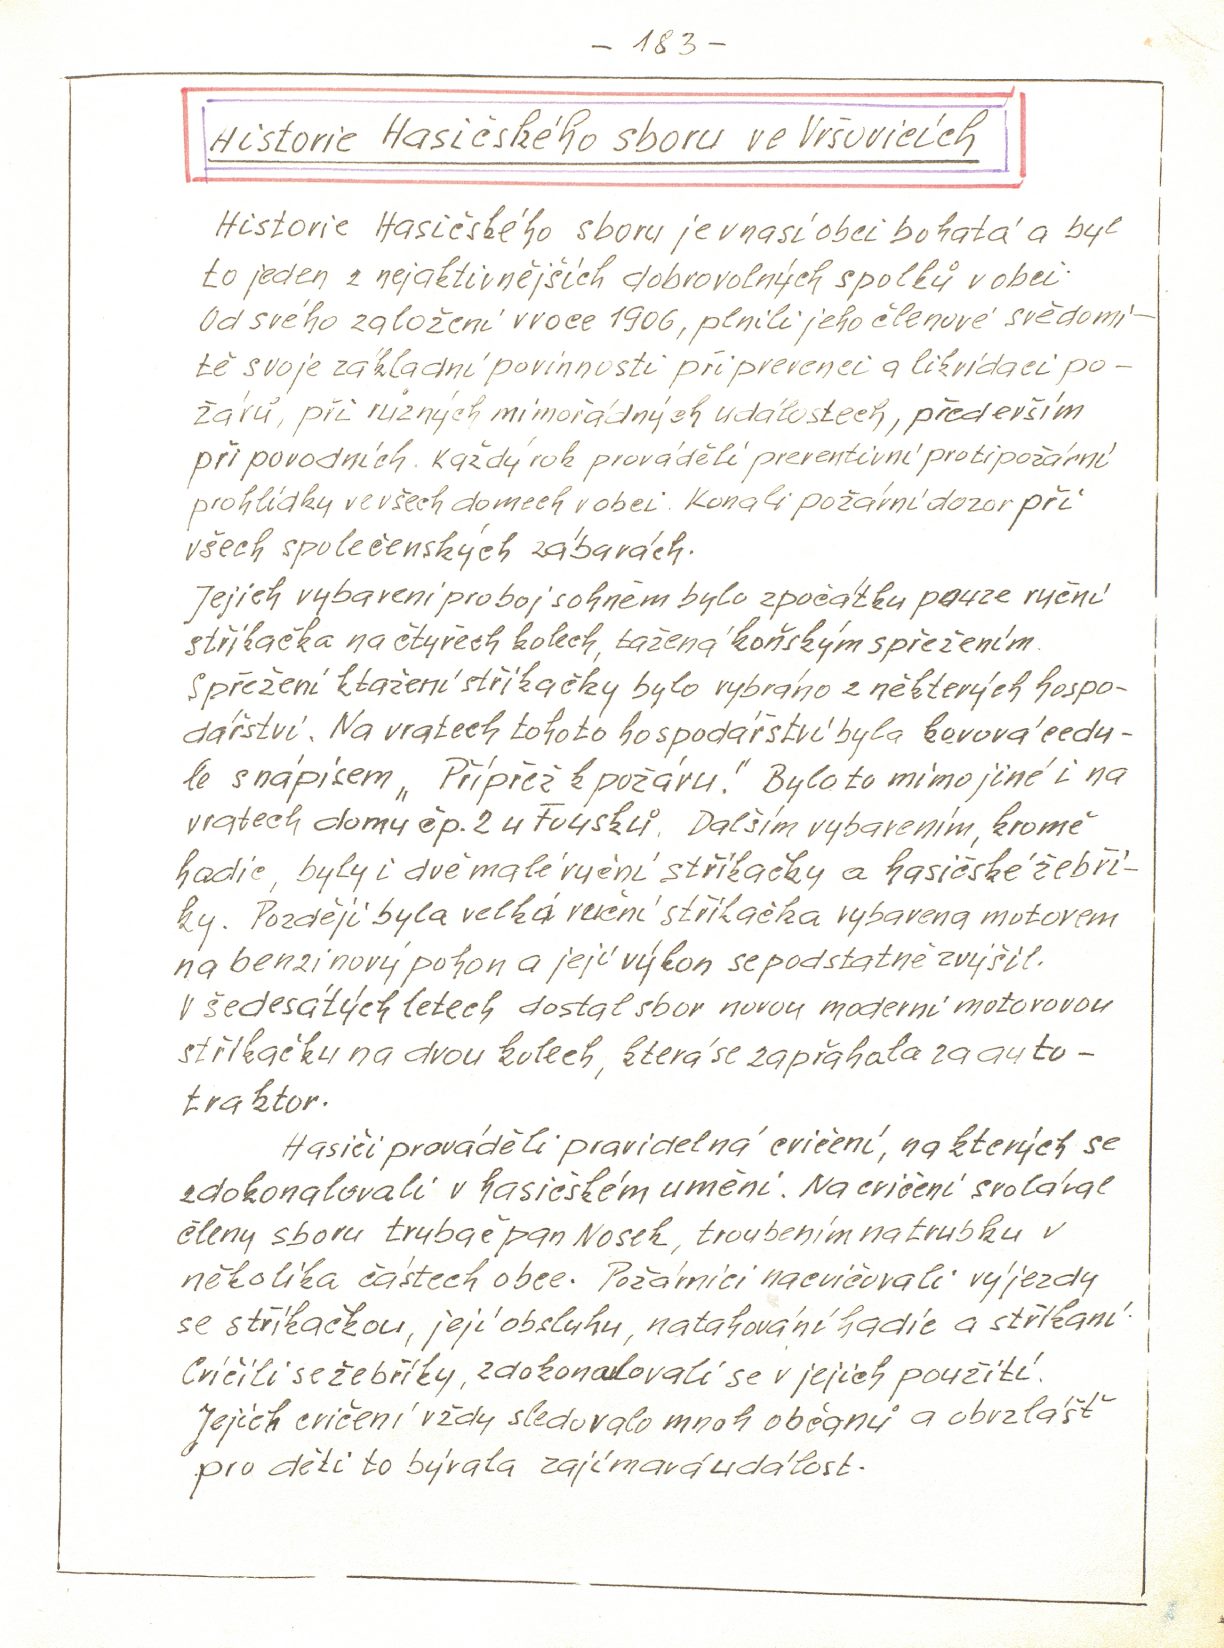 - 183 -
Historie Hasičského sboru ve Vršovicích
Historie Hasičského sboru je v naší obci bohatá a byl
to jeden z nejaktivnějších dobrovolných spolků v obci.
Od svého založení v roce 1906, plnili jeho členové svědomi-
tě svoje základní povinnosti při prevenci a likvidaci po-
žárů, při různých mimořádných událostech, především
při povodních. Každý rok prováděli preventivní protipožární
prohlídky ve všech domech v obci. Konali požární dozor při
všech společenských zábavách.
Jejich vybavení pro boj s ohněm bylo zpočátku pouze ruční
stříkačka na čtyřech kolech, tažená koňským spřežením.
Spřežení k tažení stříkačky bylo vybráno z některých hospo-
dářství. Na vratech tohoto hospodářství byla kovová cedu-
le s nápisem „Přípřež k požáru!" Bylo to mimo jiné i na
vratech domu čp. 2 u Fousků. Dalším vybavením, kromě
hadic, byly i dvě malé ruční stříkačky a hasičské žebří-
ky. Později byla velká ruční stříkačka vybavena motorem
na benzinový pohon a její výkon se podstatně zvýšil.
V šedesátých letech dostal sbor novou moderní motorovou
stříkačku na dvou kolech, která se zapřahala za auto-
traktor.
Hasiči prováděli pravidelná cvičení, na kterých se
zdokonalovali v hasičském umění. Na cvičení svolával
členy sboru trubač pan Nosek, troubením na trubku v
několika částech obce. Požárníci nacvičovali výjezdy
se stříkačkou, její obsluhu, natahování hadic a stříkání.
Cvičili se žebříky, zdokonalovali se v jejich použití.
Jejich cvičení vždy sledovalo mnoh občanů a obvzlášť
pro děti to bývala zajímavá událost.